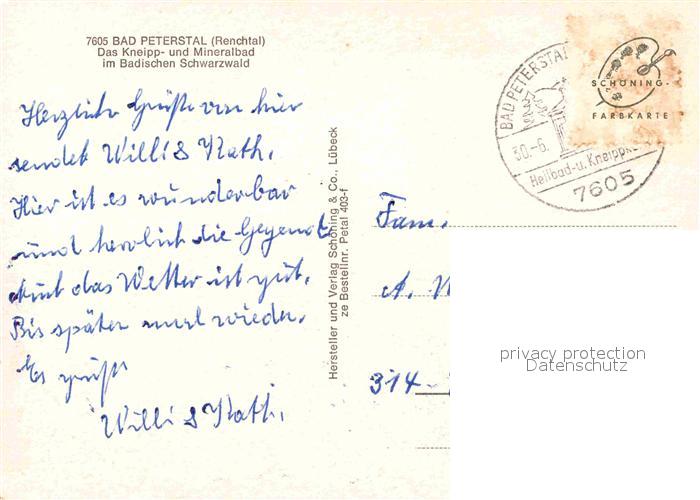 7605 BAD PETERSTAL (Renchtal)
Das Kneipp- und Mineralbad
im Badischen Schwarzwald
Herzliche Grüße von hier
sendet Willi & Kath.
Hier ist es wunderbar
und herrlich die Gegend
Auch das Wetter ist gut.
Bis später mal wieder.
Es grüßt
Willi & Kath.
Hersteller und Verlag Schöning & Co., Lübeck
ze Bestellnr. Petal 403-f
BAD PETERSTAL
30.-6.
Heilbad-u. Kneippk
7605
SCHÖNING-
FARBKARTE
Fam.
A. W
314-
privacy protection
Datenschutz